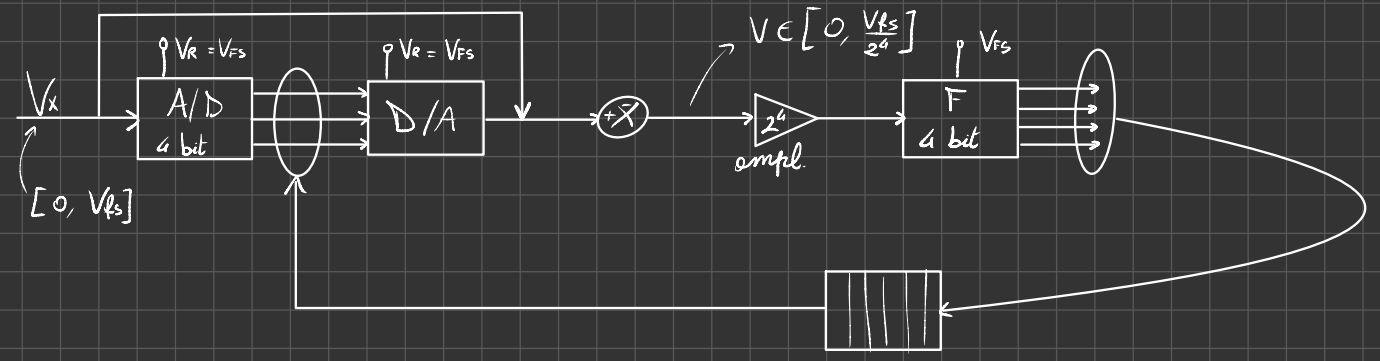 Vx
[0, Vfs]
VR = VFS
A/D
4 bit
VR = VFS
D/A
+ -
V ∈ [0, Vfs/2⁴]
2⁴
ampl.
VFS
F
4 bit